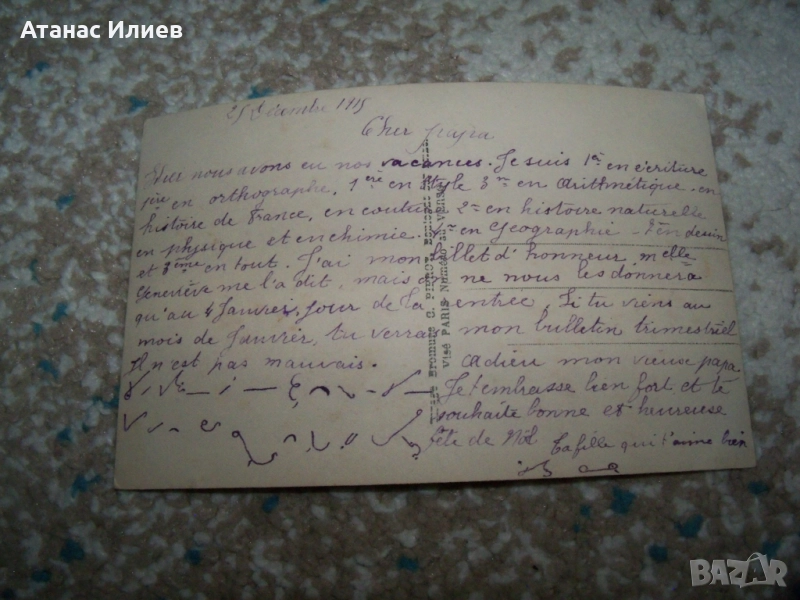 Атанас Илиев
25 Décembre 1915
Cher papa
Hier nous avons eu nos vacances. Je suis 1ère en écriture
1ère en orthographe, 1ère en style 3me en arithmétique, en
histoire de France, en couture 2me en histoire naturelle
en physique et en chimie. en Géographie en dessin
et 3ème en tout. J'ai mon billet d'honneur, melle
Geneviève me l'a dit, mais ne nous les donnera
qu'au 4 Janvier, jour de la rentrée, Si tu viens au
mois de Janvier, tu verras mon bulletin trimestriel
Il n'est pas mauvais. Adieu mon vieux papa
Je t'embrasse bien fort et te
souhaite bonne et heureuse
fête de Nöl
Ta fille qui t'aime bien
Visé PARIS Numéro au verso
BAZAR